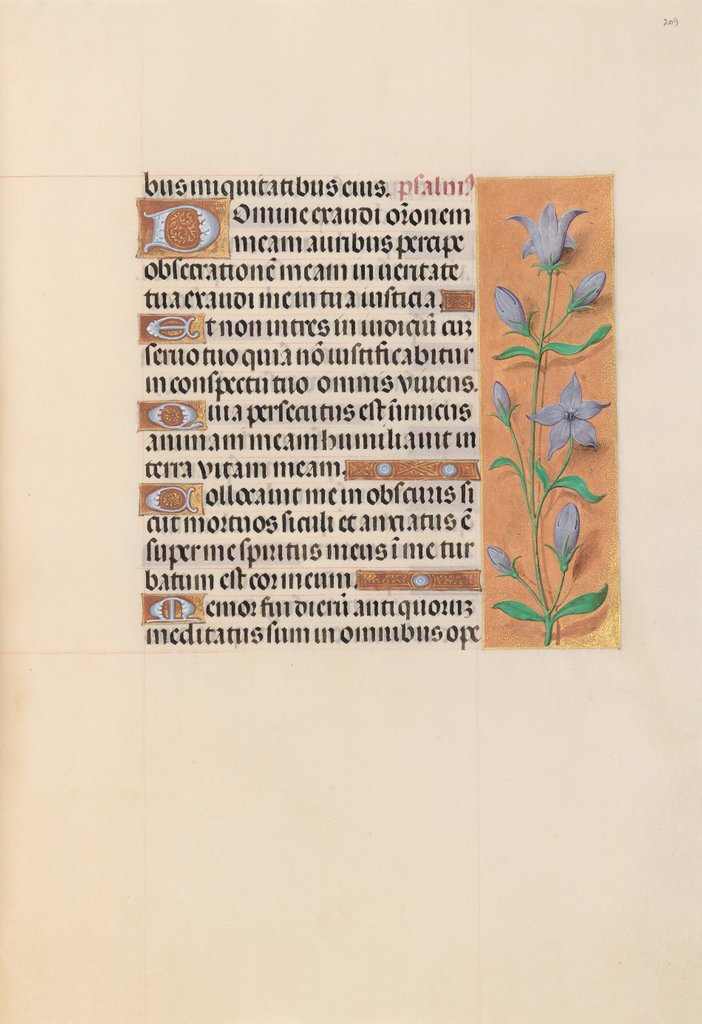 209
bus iniquitatibus eius. psalmꝰ
Domine exaudi or̄onem
meam auribus percipe
obsecrationē meam in ueritate
tua exaudi me in tua iusticia.
Et non intres in iudiciū cuz
seruo tuo quia nō iustificabitur
in conspectu tuo omnis viuens.
Quia persecutus est inimicus
animam meam humiliauit in
terra vitam meam.
Collocauit me in obscuris si
cut mortuos siculi et anxiatus ē
super me spiritus meus ī me tur
batum est cor meum.
Memor fui dierū antiquoruz
meditatus sum in omnibus ope